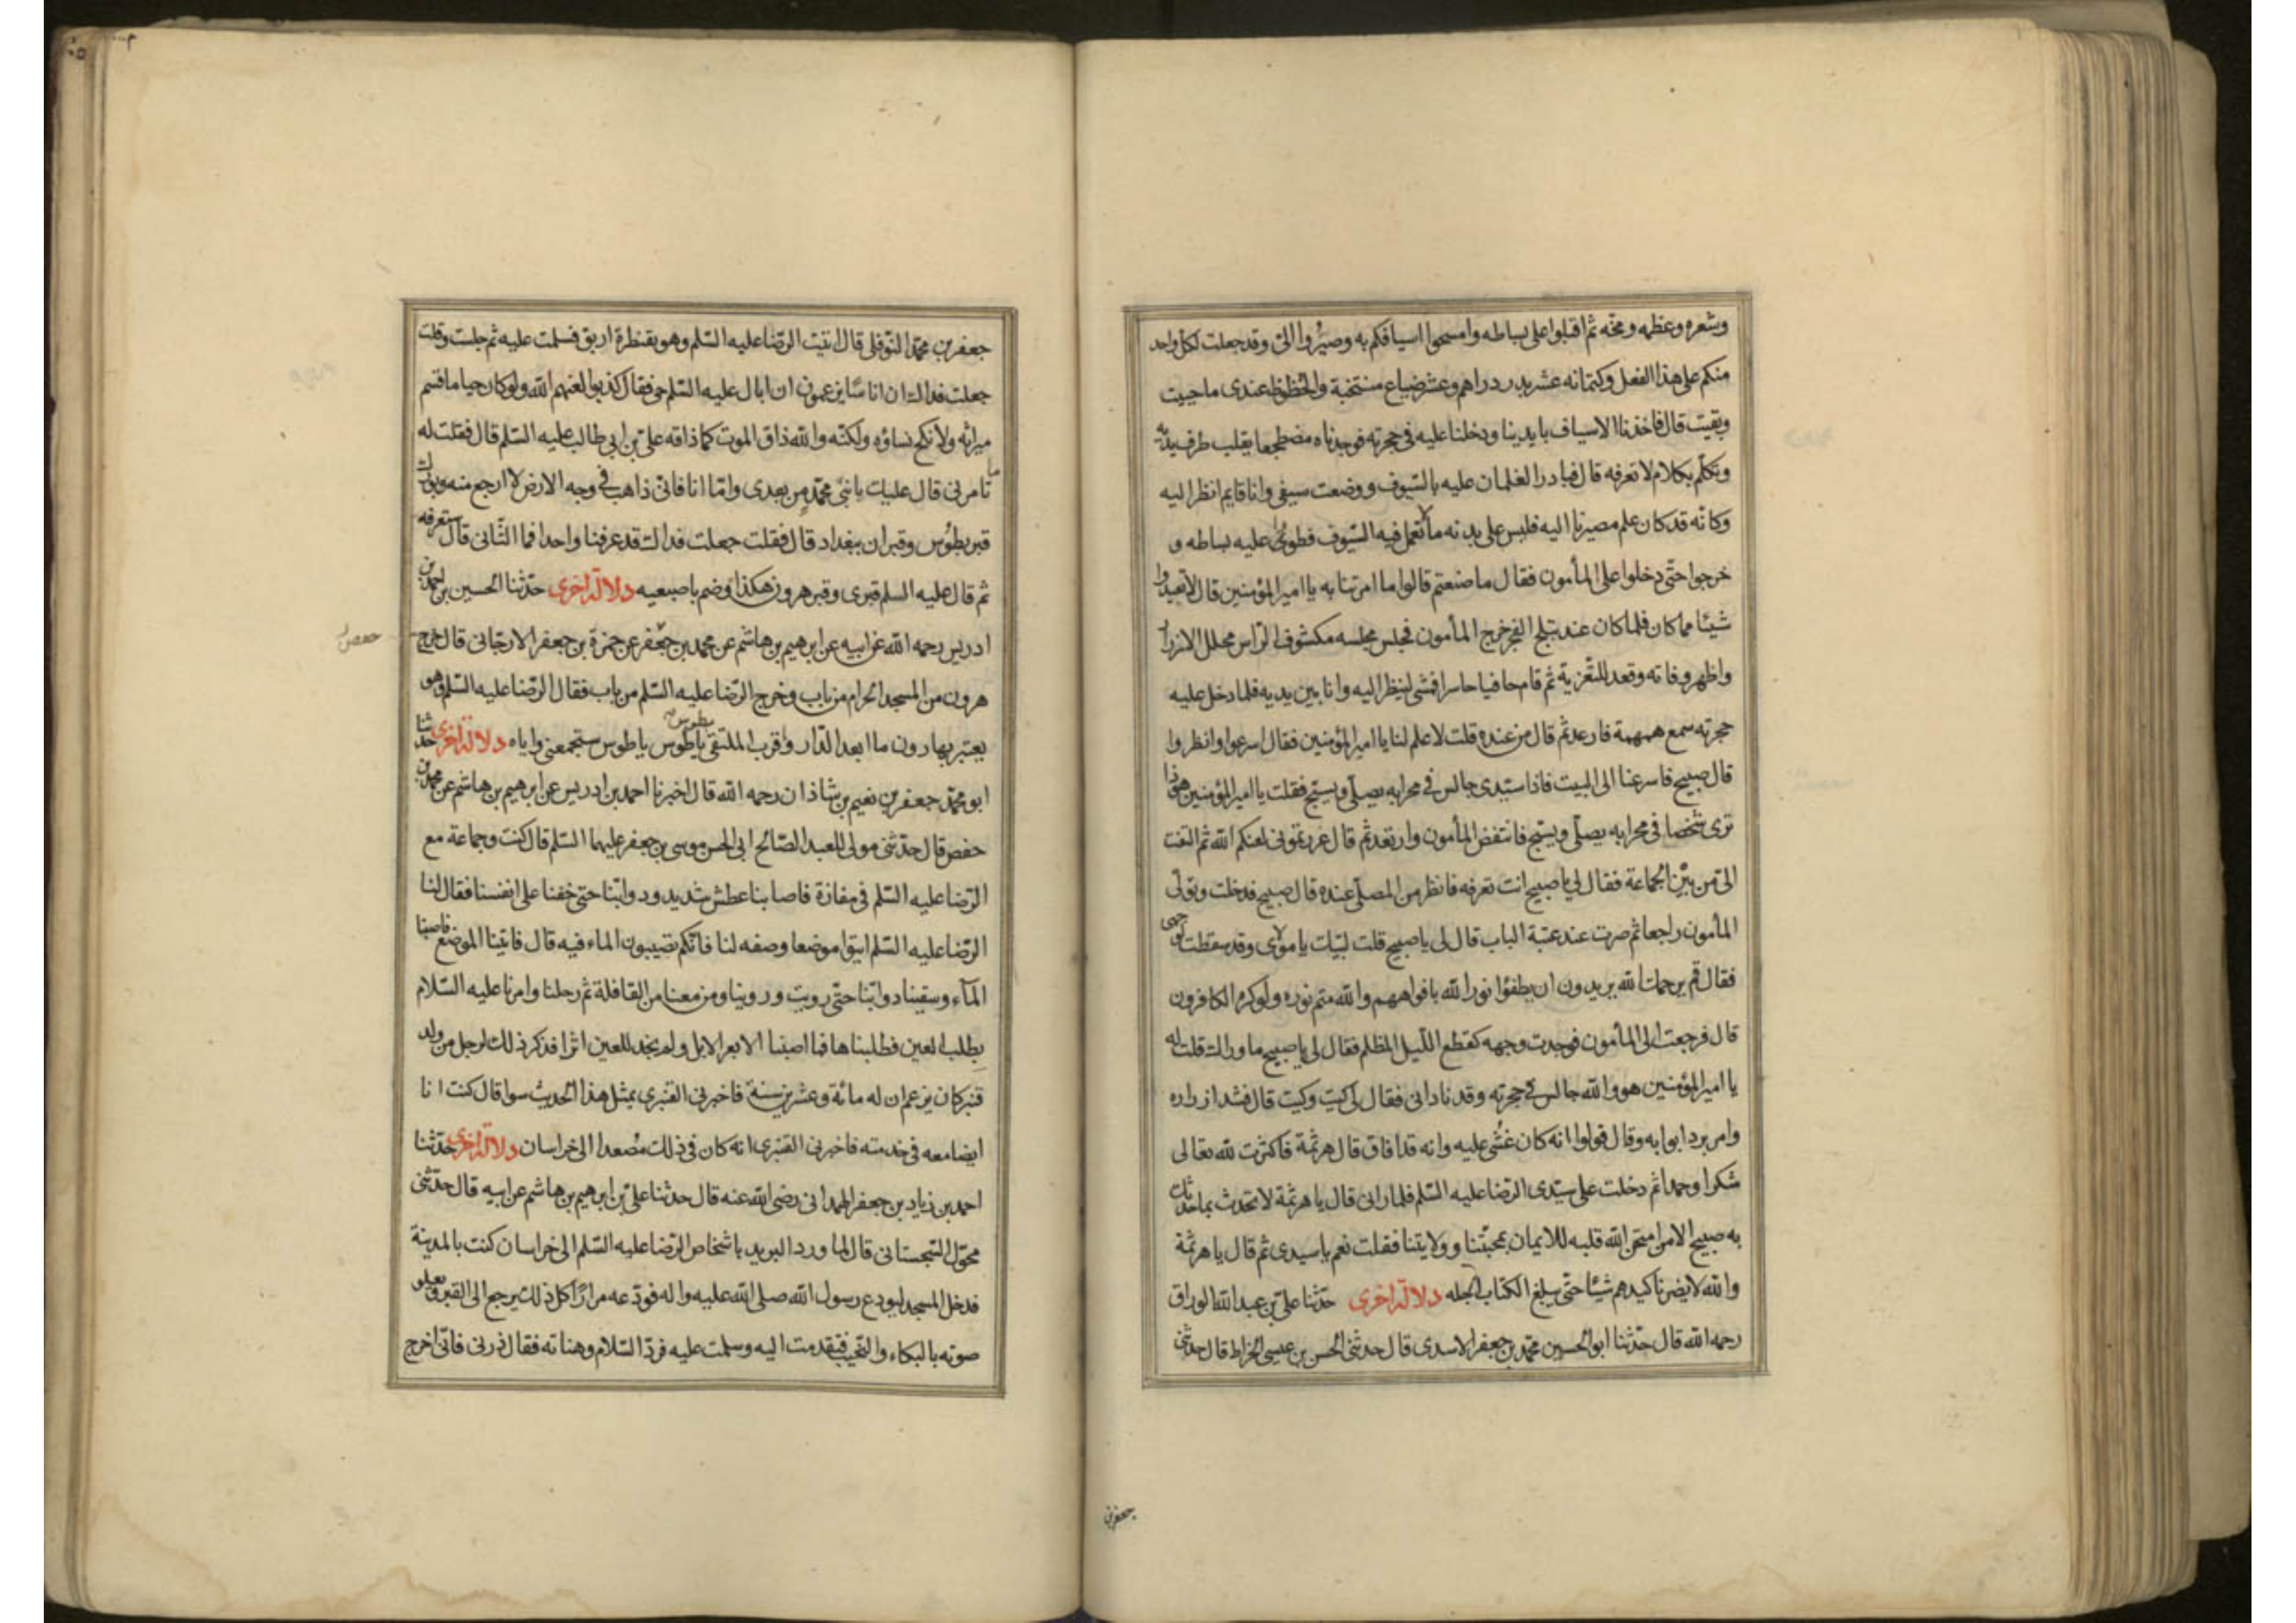 وشعره وعظمه ومخه ثم اقبلوا على بساطه وامسحوا اسيافكم به وصيروا الىّ وقد جعلت لكل واحد
منكم على هذا الفعل وكتمانه عشر بدر دراهم وعشر ضياع منتخبة والحظوظ عندى ما حييت
وبقيت قال فاخذنا الاسياف بايدينا ودخلنا عليه فى حجرته فوجدناه مضطجعا يقلب طرف يديه
وتكلم بكلام لا نعرفه قال فبادر الغلمان عليه بالسيوف ووضعت سيفى وانا قايم انظر اليه
وكانه قد كان علم مصيرنا اليه فلبس على بدنه ما لا تعمل فيه السيوف فطووا على عليه بساطه و
خرجوا حتى دخلوا على المأمون فقال ما صنعتم قالوا ما امرتنا به يا امير المؤمنين قال لا تعيدوا
شيئا مما كان فلما كان عند تبلج الفجر خرج المأمون فجلس مجلسه مكشوف الراس محلل الازرار
واظهر وفاته وقعد للتعزية ثم قام حافيا حاسرا فمشى لينظر اليه وانا بين يديه فلما دخل عليه
حجرته سمع همهمة فارعد ثم قال من عنده قلت لا علم لنا يا امير المؤمنين فقال اسرعوا وانظروا
قال صبيح فاسرعنا الى البيت فاذا سيدى جالس فى محرابه يصلّى ويسبح فقلت يا امير المؤمنين هو ذا
ترى شخصا فى محرابه يصلّى ويسبح فانتفض المأمون وارتعد ثم قال غررتمونى لعنكم الله ثم التفت
الىّ من بين الجماعة فقال لى يا صبيح انت تعرفه فانظر من المصلّى عنده قال صبيح فدخلت وتولّى
المأمون راجعا ثم صرت عند عتبة الباب قال لى يا صبيح قلت لبيك يا مولاى وقد سقطت لوجهى
فقال قم يرحمك الله يريدون ان يطفؤا نور الله بافواههم والله متم نوره ولو كره الكافرون
قال فرجعت الى المأمون فوجدت وجهه كقطع الليل المظلم فقال لى يا صبيح ما وراك قلت له
يا امير المؤمنين هو والله جالس فى حجرته وقد نادانى فقال لى كيت وكيت قال فشد ازراره
وامر برد ابوابه وقال قولوا انه كان غشى عليه وانه قد افاق قال هرثمة فاكثرت لله تعالى
شكرا وحمدا ثم دخلت على سيدى الرضا عليه السّلم فلما رانى قال يا هرثمة لا تحدث بما حدثك
به صبيح الا من امتحن الله قلبه للايمان بمحبتنا وولايتنا فقلت نعم يا سيدى ثم قال يا هرثمة
والله لا يضرنا كيدهم شيئا حتى يبلغ الكتاب اجله دلالة اخرى حدثنا على بن عبد الله الوراق
رحمه الله قال حدثنا ابو الحسين محمد بن جعفر الاسدى قال حدثنى الحسن بن عيسى الخراط قال حدثنى
جعفر بن
جعفر بن محمد النوفلى قال اتيت الرضا عليه السّلم وهو بقنطرة اربق فسلمت عليه ثم جلست وقلت
جعلت فداك ان اناسا يزعمون ان اباك عليه السّلم حى فقال كذبوا لعنهم الله ولو كان حيا ما قسم
ميراثه ولا نكح نساؤه ولكنه والله ذاق الموت كما ذاقه على بن ابى طالب عليه السّلم قال فقلت له
ما تامرنى قال عليك بابنى محمد من بعدى واما انا فانى ذاهب فى وجه الارض لا ارجع منه وبورك
قبر بطوس وقبران ببغداد قال فقلت جعلت فداك قد عرفنا واحدا فما الثانى قال ستعرفه
ثم قال عليه السلم قبرى وقبر هرون هكذا وضم باصبعيه دلالة اخرى حدثنا الحسين بن احمد بن
ادريس رحمه الله عن ابيه عن ابرهيم بن هاشم عن محمد بن جعفر عن حمزة بن جعفر الارجانى قال خرج
حفص
هرون من المسجد الحرام من باب وخرج الرضا عليه السّلم من باب فقال الرضا عليه السّلم وهو
يعتبر بهارون ما ابعد الدار واقرب الملتقى بطوس يا طوس يا طوس ستجمعنى واياه دلالة اخرى حدثنا
ابو محمد جعفر بن نعيم بن شاذان رحمه الله قال اخبرنا احمد بن ادريس عن ابرهيم بن هاشم عن محمد بن
حفص قال حدثنى مولى للعبد الصالح ابى الحسن موسى بن جعفر عليهما السّلم قال كنت وجماعة مع
الرضا عليه السّلم فى مفازة فاصابنا عطش شديد ودوابنا حتى خفنا على انفسنا فقال لنا
الرضا عليه السّلم ايتوا موضعا وصفه لنا فانكم تصيبون الماء فيه قال فاتينا الموضع فاصبنا
الماء وسقينا دوابنا حتى رويت وروينا ومن معنا من القافلة ثم رحلنا وامرنا عليه السّلام
بطلب العين فطلبناها فما اصبنا الا بعر الابل ولم نجد للعين اثرا فذكر ذلك لرجل من ولد
قنبر كان يزعم ان له مائة وعشرين سنة فاخبرنى القنبرى بمثل هذا الحديث سوا قال كنت انا
ايضا معه فى خدمته فاخبرنى القنبرى انه كان فى ذلك مصعدا الى خراسان دلالة اخرى حدثنا
احمد بن زياد بن جعفر الهمدانى رضى الله عنه قال حدثنا على بن ابرهيم بن هاشم عن ابيه قال حدثنى
محول السجستانى قال لما ورد البريد باشخاص الرضا عليه السّلم الى خراسان كنت بالمدينة
فدخل المسجد ليودع رسول الله صلى الله عليه واله فودعه مرارا كل ذلك يرجع الى القبر ويعلو
صوته بالبكاء والنحيب فتقدمت اليه وسلمت عليه فرد السّلام وهناته فقال ذرنى فانى اخرج